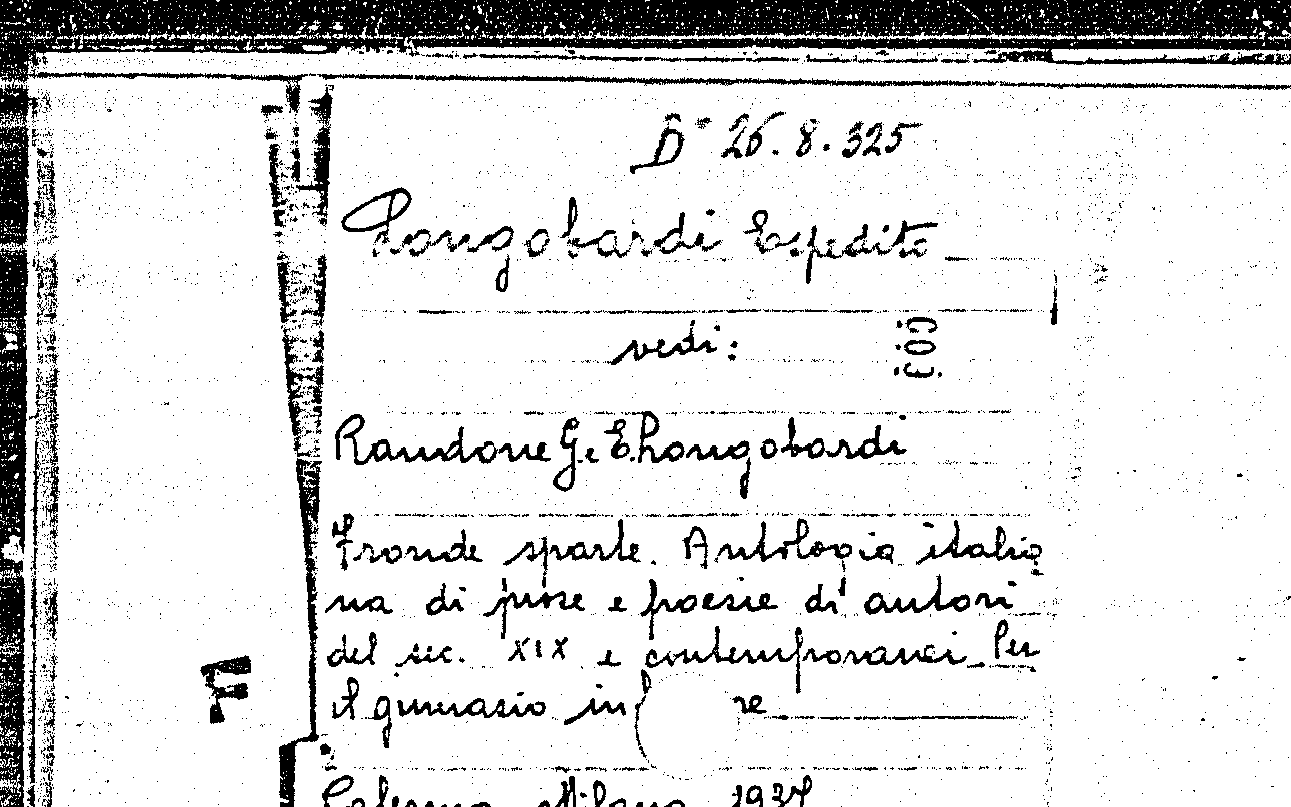 D- 26.8.325
Longobardi Espedito
vedi:
Randone G. e E. Longobardi
Fronde sparte. Antologia italia
na di prose e poesie di autori
del sec. XIX e contemporanei. Per
il ginnasio in re
Palermo, Milano 1937